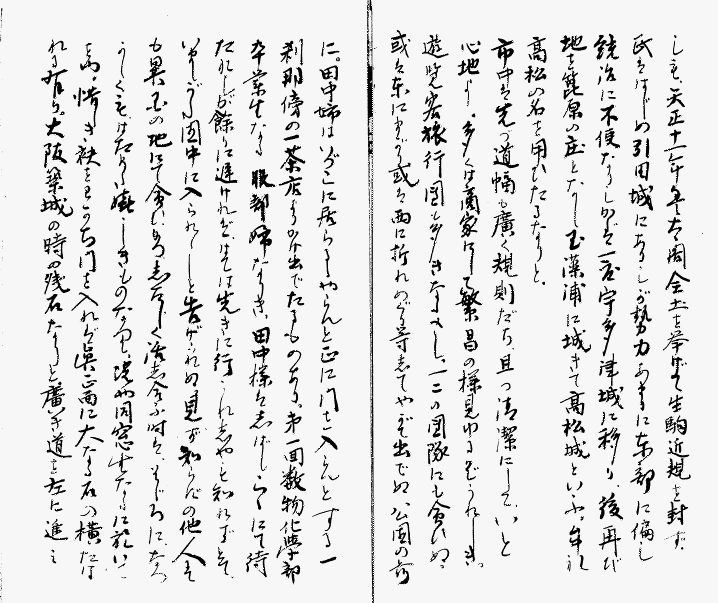 しも、天正十一年 太閤全土を挙げて生駒近規を封ず、
氏ははじめ引田城にありしが勢力あまりに東部に偏し
統治に不便なりしかば一旦宇多津城に移り、後再び
地を箆原の庄となし玉藻浦に城きて高松城といふ、
高松の名を用ひたるなりと。
市中は先づ道幅も廣く規則だち、且つ清潔にして、いと
心地よし、多くは商家にして繁昌の様見ゆるぞうれしき、
遊覧客旅行團も多きなるべし、一二の團隊にも會ひぬ、
或は東にまがり或は西に折れのぼり等してやがて出でぬ、公園の前
に。田中姉はいづこに居らるゝやらんと正に門を入らんとする一
刹那傍の一茶店よりかけ出でたるものあり、第一回数物化學部
卒業生なる服部姉なりき、田中様もしばしこゝにて待
たれしが餘りに遅ければ先きに行かれしやも知れずとて、
園中に入られしと告げられぬ見ず知らずの他人
も異の地にて會ひ
うしく 嬉しきものなるを、況や同窓生なるに於いて
を高、惜しき袂をわかち門を入れば真正面に大なる石の横たは
れる有り、大阪築城の時の残石なりと廣き道を左に進み